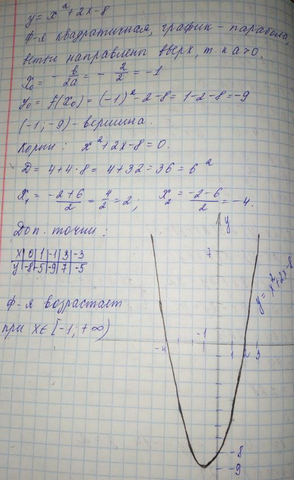 y = x² + 2x - 8
ф-я квадратичная, график - парабола
ветви направлены вверх т.к a > 0.
x₀ = - b/2a = - 2/2 = -1
y₀ = f(x₀) = (-1)² - 2 - 8 = 1 - 2 - 8 = -9
(-1; -9) - вершина.
Корни: x² + 2x - 8 = 0.
D = 4 + 4·8 = 4 + 32 = 36 = 6²
x₁ = (-2+6)/2 = 4/2 = 2; x₂ = (-2-6)/2 = -4.
Доп. точки:
x | 0 | 1 | -1 | 3 | -3
y | -8 | -5 | -9 | 7 | -5
ф-я возрастает
при x ∈ [-1, +∞)
y
7
y = x² + 2x - 8
-1
-4 2 3
-8
-9